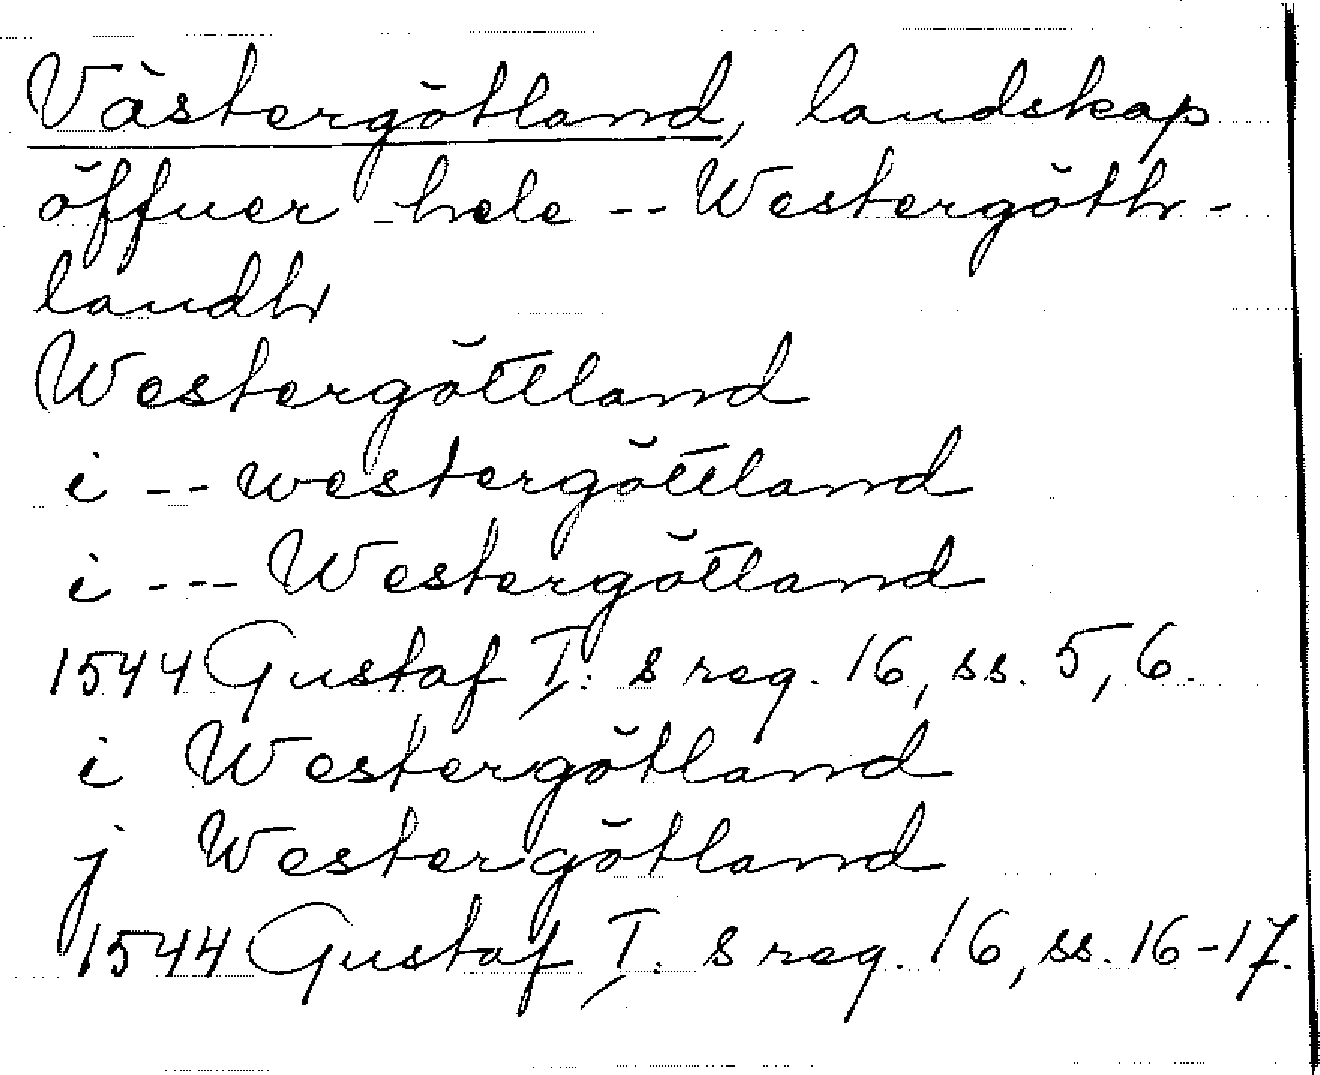 Västergötland, landskap
öffuer hele -- Westergöth-
landh
Westergöttland
i -- westergöttland
i --- Westergötland
1544 Gustaf I:s reg. 16, ss. 5, 6.
i Westergötland
j Westergötland
1544 Gustaf I:s reg. 16, ss. 16-17.